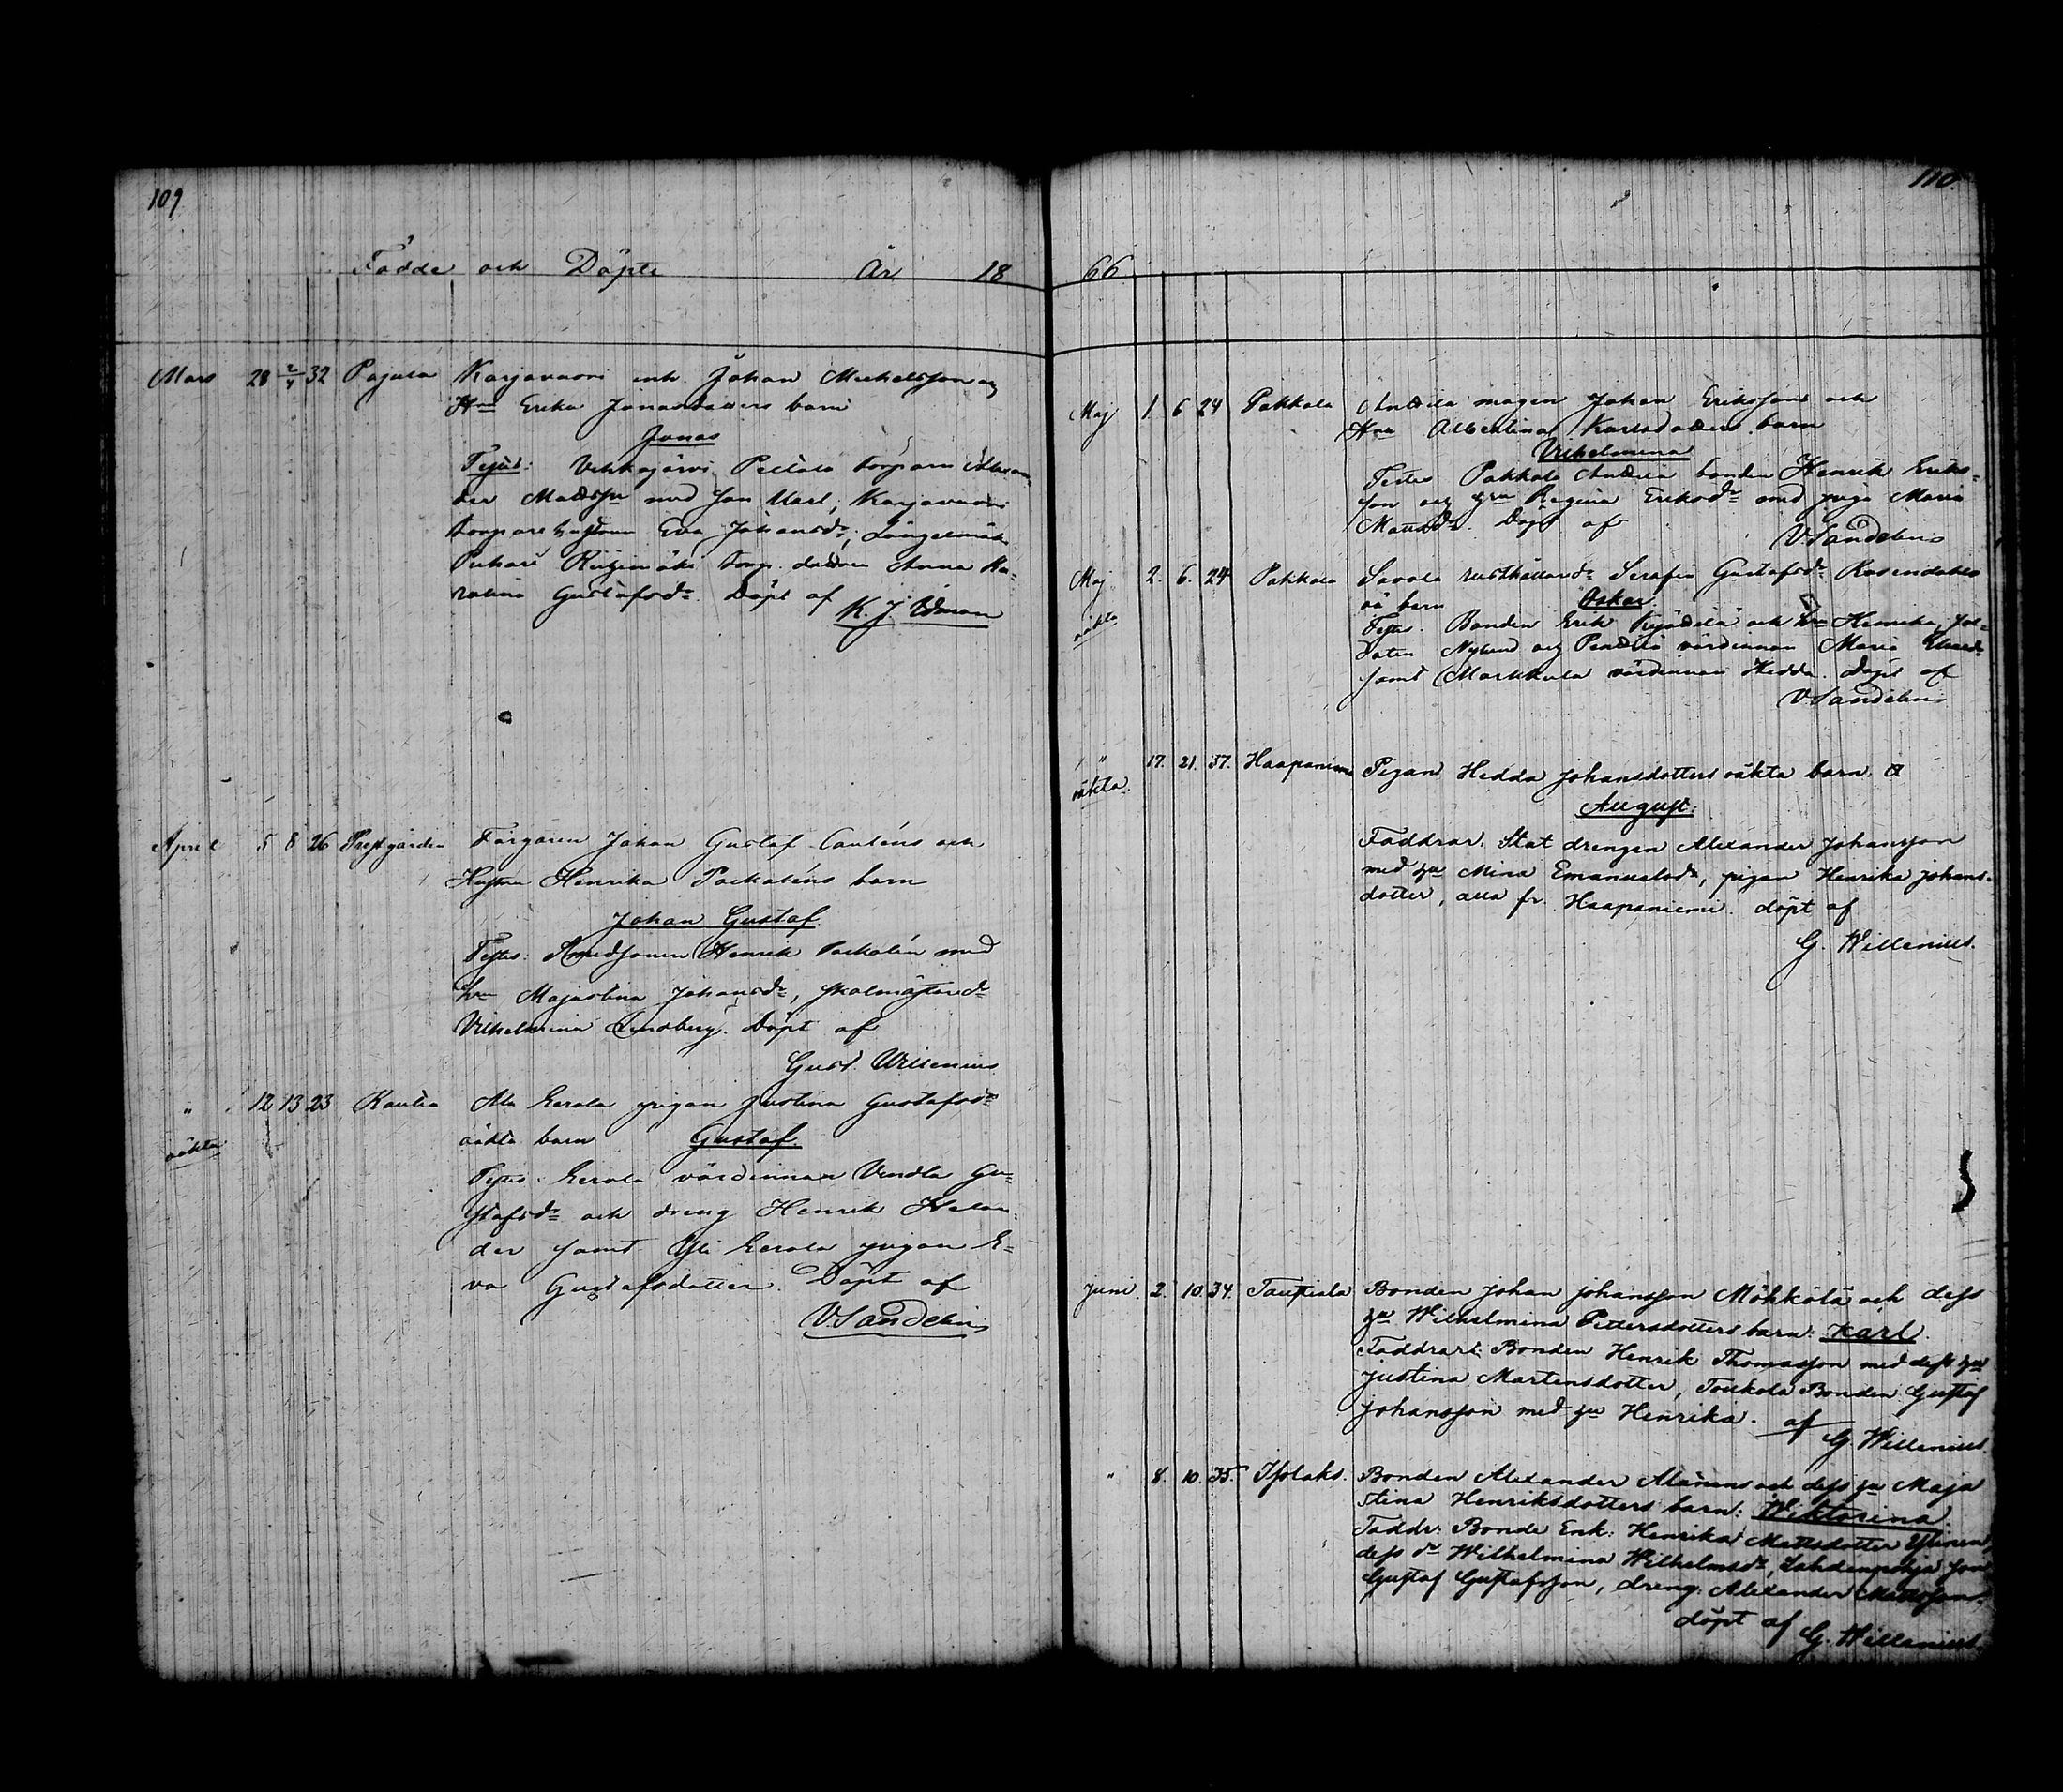 109
Födde och Döpte År 18
Mars 28 2/4 32 Pajula Karjavuori inh. Johan Michelsson og
Hru Erika Jonasdotters barn
Jonas
Testes: Vehkajärvi Peltola torparn Alexan
der Mattsson med son Karl, Karjavuori
torpare hustrun Eva Johansdr, Längelmäki
Puhari Riihimäki torp. dottern Anna Ka-
rolina Gustafsdr. Döpt af K. J. Edman
April 5 8 26 Prestgården Färgaren Johan Gustaf Cauténs och
Hustru Henrika Packaléns barn
Johan Gustaf
Testes: Smedsonen Henrik Packalén med
hru Majastina Johansdr, skolmästaredr
Vilhelmina Lindberg. Döpt af
Gust. Willenius
" 12 13 23 Kautia Ala Eerola pigan Justina Gustafsdr
oäkta
oäkta barn Gustaf.
Testes: Eerola värdinnan Vendla Gu-
stafsdr och dreng Henrik Helan-
der samt Yli Eerola pigan E-
va Gustafsdotter. Döpt af
V. Sandelin
110.
66
Maj 1. 6 24 Pakkala Anttila mågen Johan Erikssons och
Hru Albertina Karlsdotters barn
Vilhelmina
Testes Pakkala Anttila bonden Henrik Eriks-
son og hru Regina Eriksdr med piga Maria
Mattsdr. Döpt af
V. Sandelin
Maj 2. 6. 24 Pakkala Savola rusthållaredr Serafia Gustafsdr Rosendahls
oäkta
oä barn Oskar.
Testes. Bonden Erik och hru Henrika, sol-
daten Nylund og Penttilä värdinnan Maria
samt Markkula värdinnan Hedda. Döpt af
V. Sandelin
" 17. 21. 37. Haapaniemi Pigan Hedda Johansdotters oäkta barn
oäkta.
August.
Faddrar: Stat drengen Alexander Johansson
med hu Mina Emanuelsdr, pigan Henrika Johans-
dotter, alla fr. Haapaniemi. döpt af
G. Willenius.
Juni. 2. 10. 34. Tauttiala Bonden Johan Johansson Möhkölä och dess
hu Wilhelmina Pettersdotters barn: Karl.
Faddrar: Bonden Henrik Thomasson med dess hu
Justina Martensdotter, Toukola Bonden Gustaf
Johansson med hu Henrika. af
G. Willenius.
" 8. 10. 35. Isolaks. Bonden Alexander Alanens och dess hu Maja
Stina Henriksdotters barn: Wiktorina.
Faddr: Bonde Enk: Henrika Mattsdotter Ylinen,
dess dr Wilhelmina Wilhelmsdr, Lahdenpohja son
Gustaf Gustafsson, dreng. Alexander Mattsson.
döpt af G. Willenius